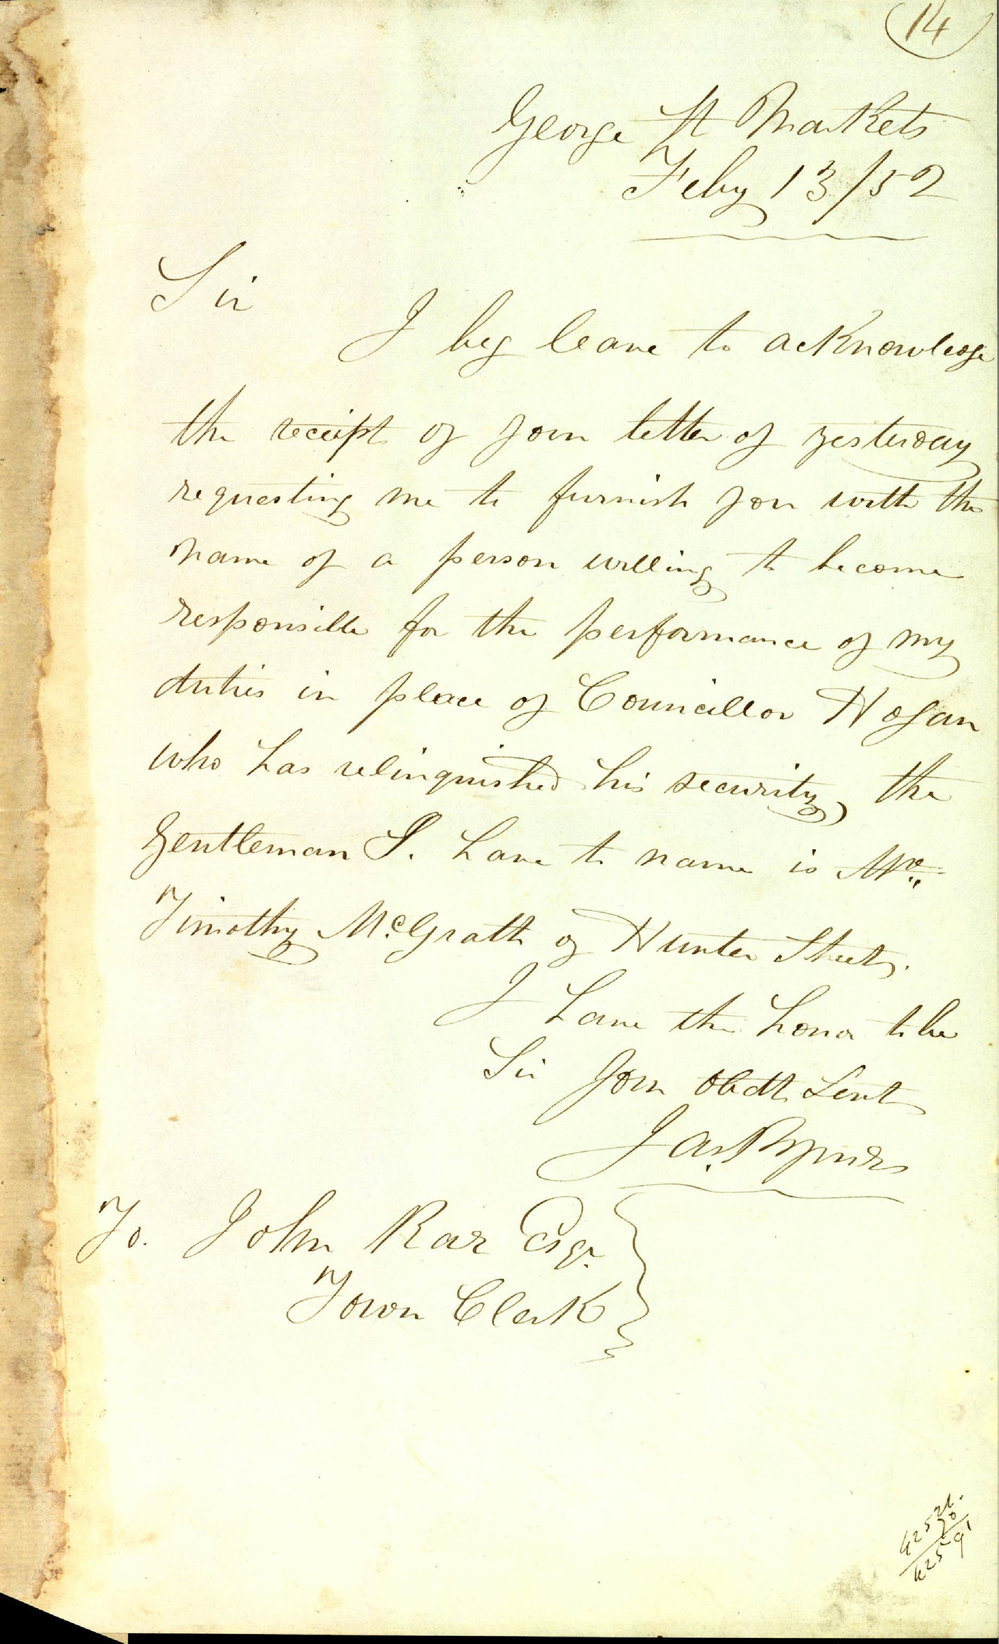 14
George St Markets
Feby 13/52
Sir
I beg leave to acknowledge
the receipt of your letter of yesterday
requesting me to furnish you with the
name of a person willing to become
responsible for the performance of my
duties in place of Councillor Hogan
who has relinquished his security, the
Gentleman I. have to name is Mr.
Timothy McGrath of Hunter Street.
I have the honor to be
Sir your Obdt Servt
Jas.
To. John Rae Esqr.
Town Clerk